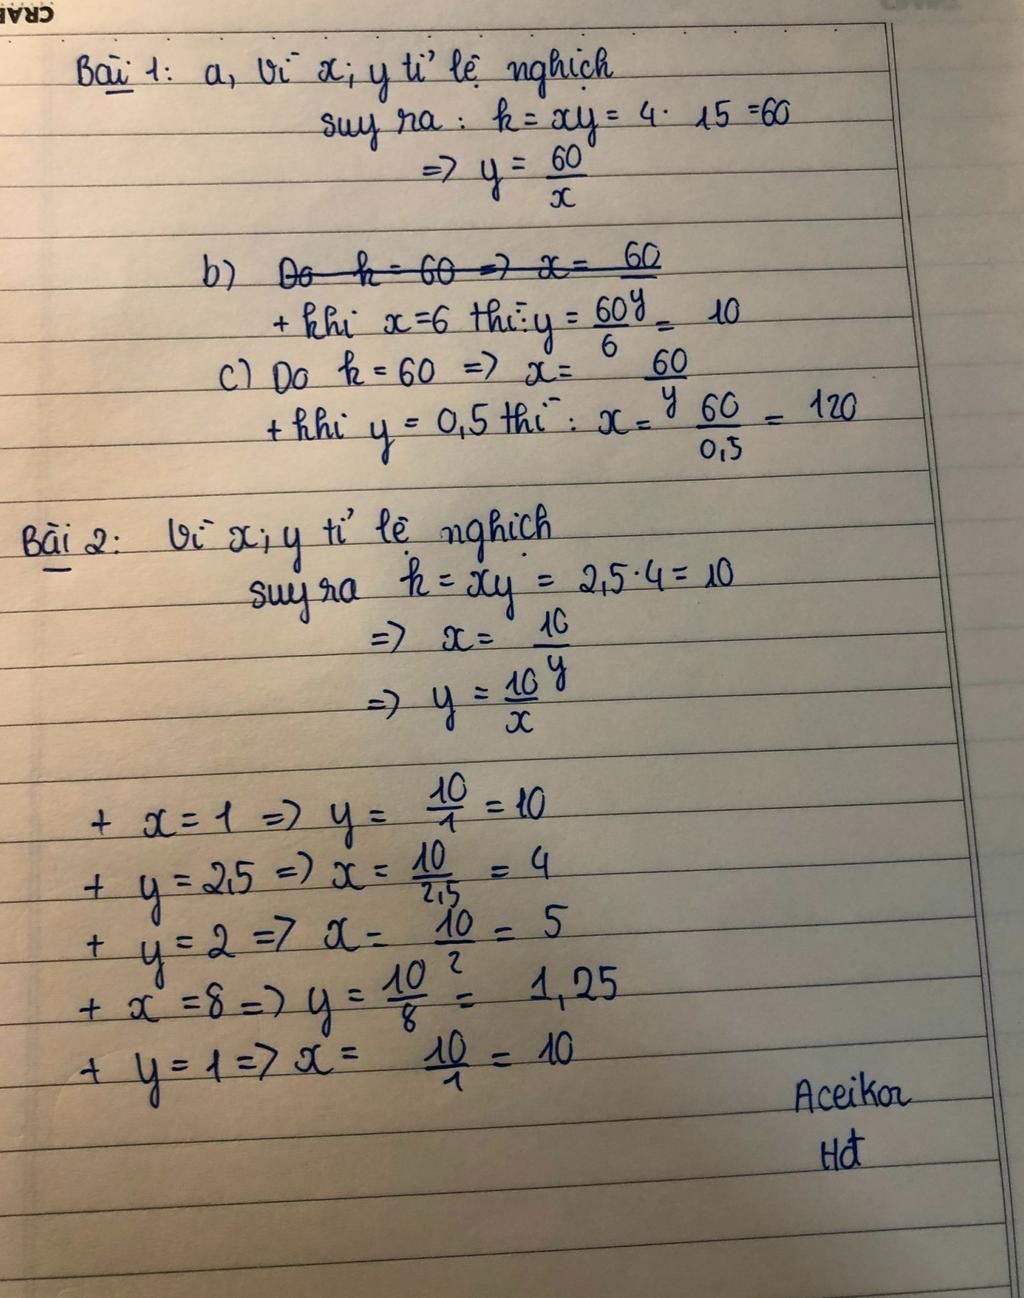 CRAB
Bài 1: a, Vì x; y tỉ lệ nghịch
suy ra : k = xy = 4 . 15 = 60
=> y = 60/x
b) Do k = 60 => x = 60/y
+ khi x = 6 thì : y = 60/6 = 10
c) Do k = 60 => x = 60/y
+ khi y = 0,5 thì : x = 60/0,5 = 120
Bài 2: Vì x; y tỉ lệ nghịch
suy ra k = xy = 2,5 . 4 = 10
=> x = 10/y
=> y = 10/x
+ x = 1 => y = 10/1 = 10
+ y = 2,5 => x = 10/2,5 = 4
+ y = 2 => x = 10/2 = 5
+ x = 8 => y = 10/8 = 1,25
+ y = 1 => x = 10/1 = 10
Aceikor
Hđ